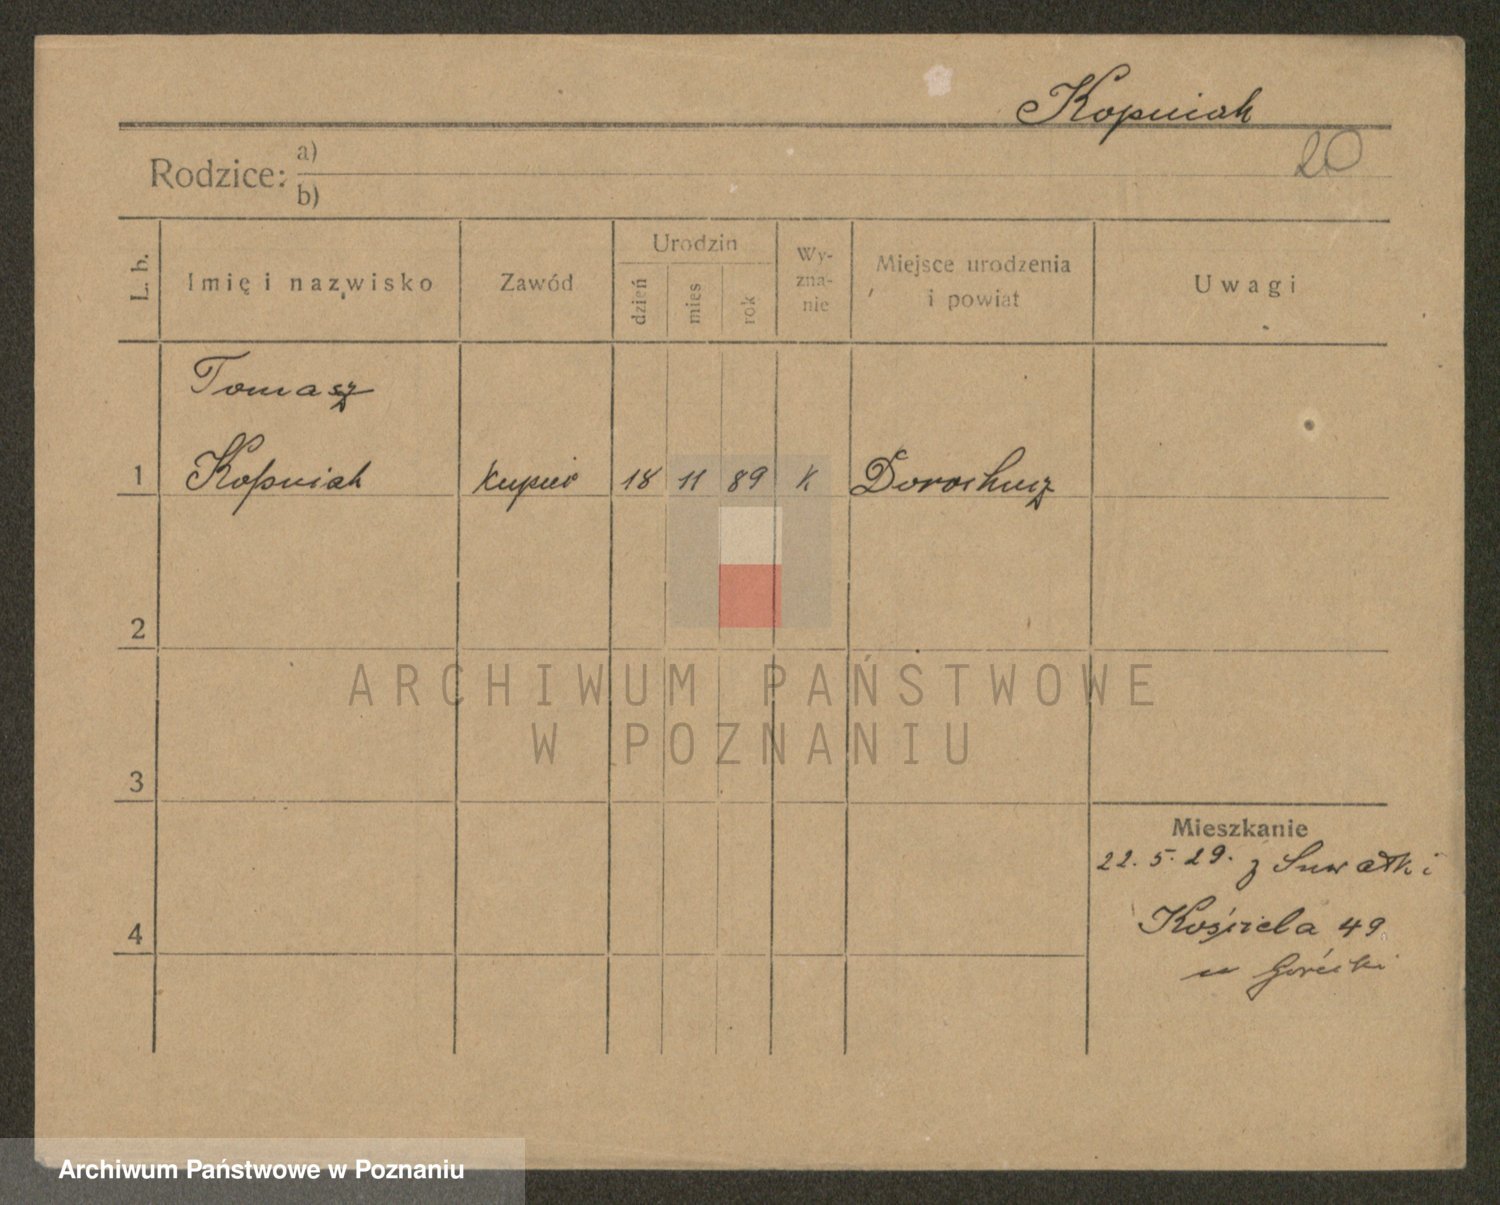 Kopniak
20
Rodzice: a)
b)
L. b.
Imię i nazwisko
Zawód
Urodzin
dzień
mies
rok
Wy-
zna-
nie
Miejsce urodzenia
i powiat
Uwagi
Tomasz
1 Kopniak kupiec 18 11 89 K Dorohusz
2
ARCHIWUM PAŃSTWOWE
W POZNANIU
3
Mieszkanie
22. 5. 29. z Suwałki
4 Kościela 49
u Górecki
Archiwum Państwowe w Poznaniu